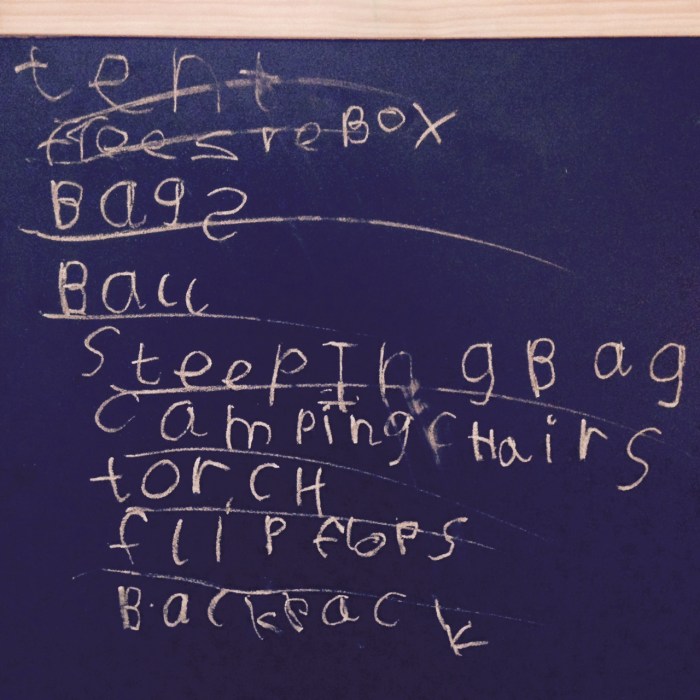 tent
BOX
Bags
Ball
SteepIngBag
CampingcHairs
torcH
flip flops
Backpack